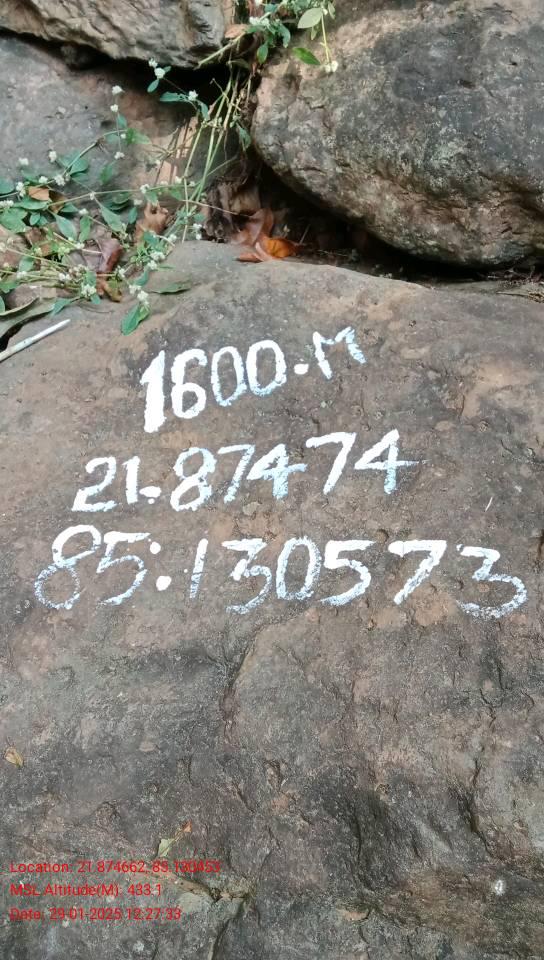 1600.M
21.87474
85:130573
Location: 21.874662, 85.130453
MSL Altitude(M): 433.1
Date: 29-01-2025 12:27:33